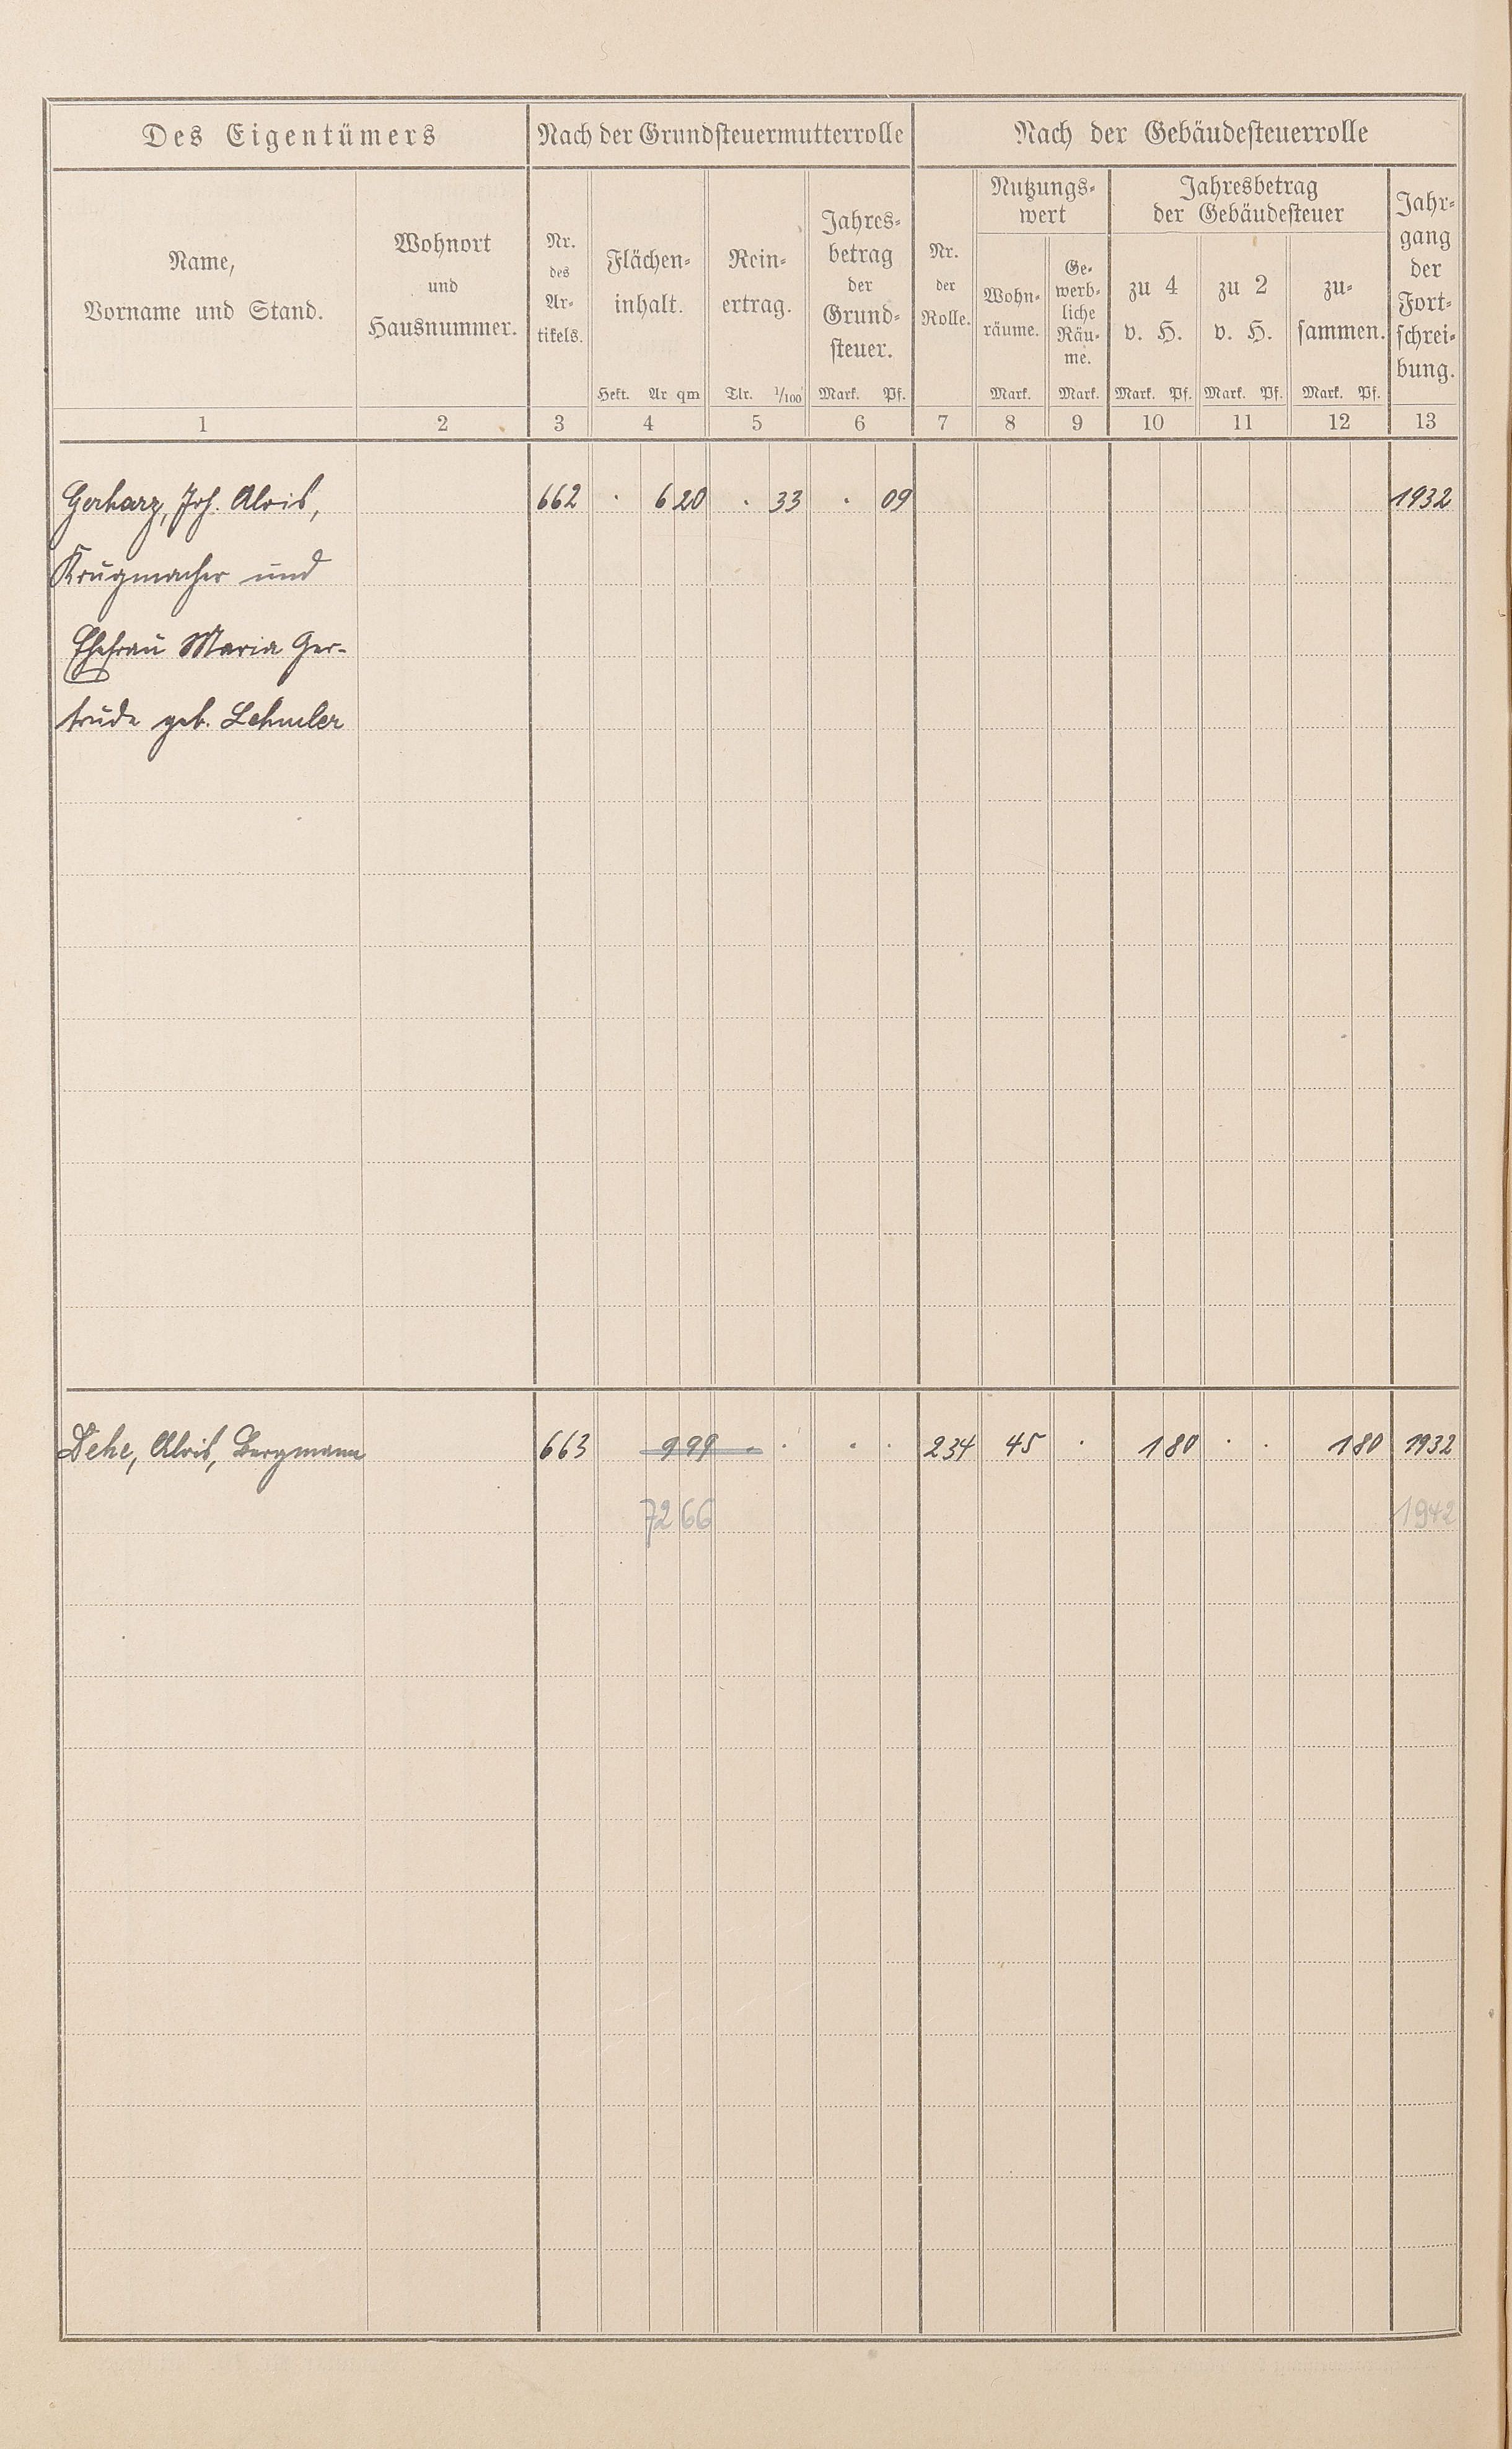 Des Eigentümers
Nach der Grundsteuermutterrolle
Nach der Gebäudesteuerrolle
Name,
Vorname und Stand.
Wohnort
und
Hausnummer.
Nr.
des
Ar-
tikels.
Flächen-
inhalt.
Hekt. Ar qm
Rein-
ertrag.
Tlr. 1/100
Jahres-
betrag
der
Grund-
steuer.
Mark. Pf.
Nr.
der
Rolle.
Nutzungs-
wert
Wohn-
räume.
Mark.
Ge-
werb-
liche
Räu-
me.
Mark.
Jahresbetrag
der Gebäudesteuer
zu 4
v. H.
Mark. Pf.
zu 2
v. H.
Mark. Pf.
zu-
sammen.
Mark. Pf.
Jahr-
gang
der
Fort-
schrei-
bung.
1 2 3 4 5 6 7 8 9 10 11 12 13
Gerharz, Joh. Alois, 662 . 6 20 . 33 . 09 1932
Krugmacher und
Ehefrau Maria Ger-
trude geb. Lehmler
Dehe, Alois, Bergmann 663 9 99 - . . . 234 45 . 1 80 . . 1 80 1932
72 66 1942